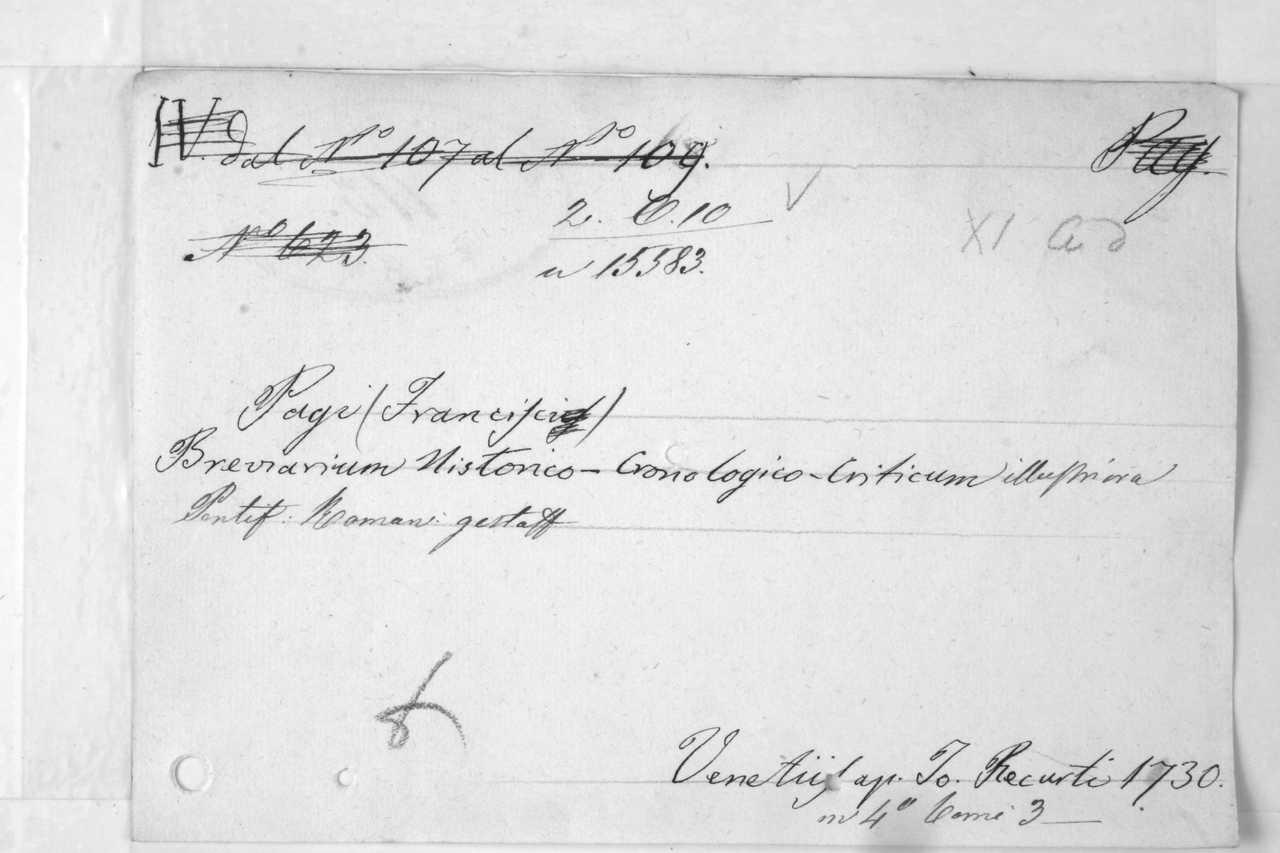 IV. dal Nº 107 al Nº 109. Pag.
2. C. 10 V
Nº 623. XI
n 15583.
Pagi (Francisci)
Breviarium Historico-Cronologico-Criticum illustriora
Pontif: Roman: gesta
Venetiis ap. Jo. Recurti 1730.
in 4º Tomi 3